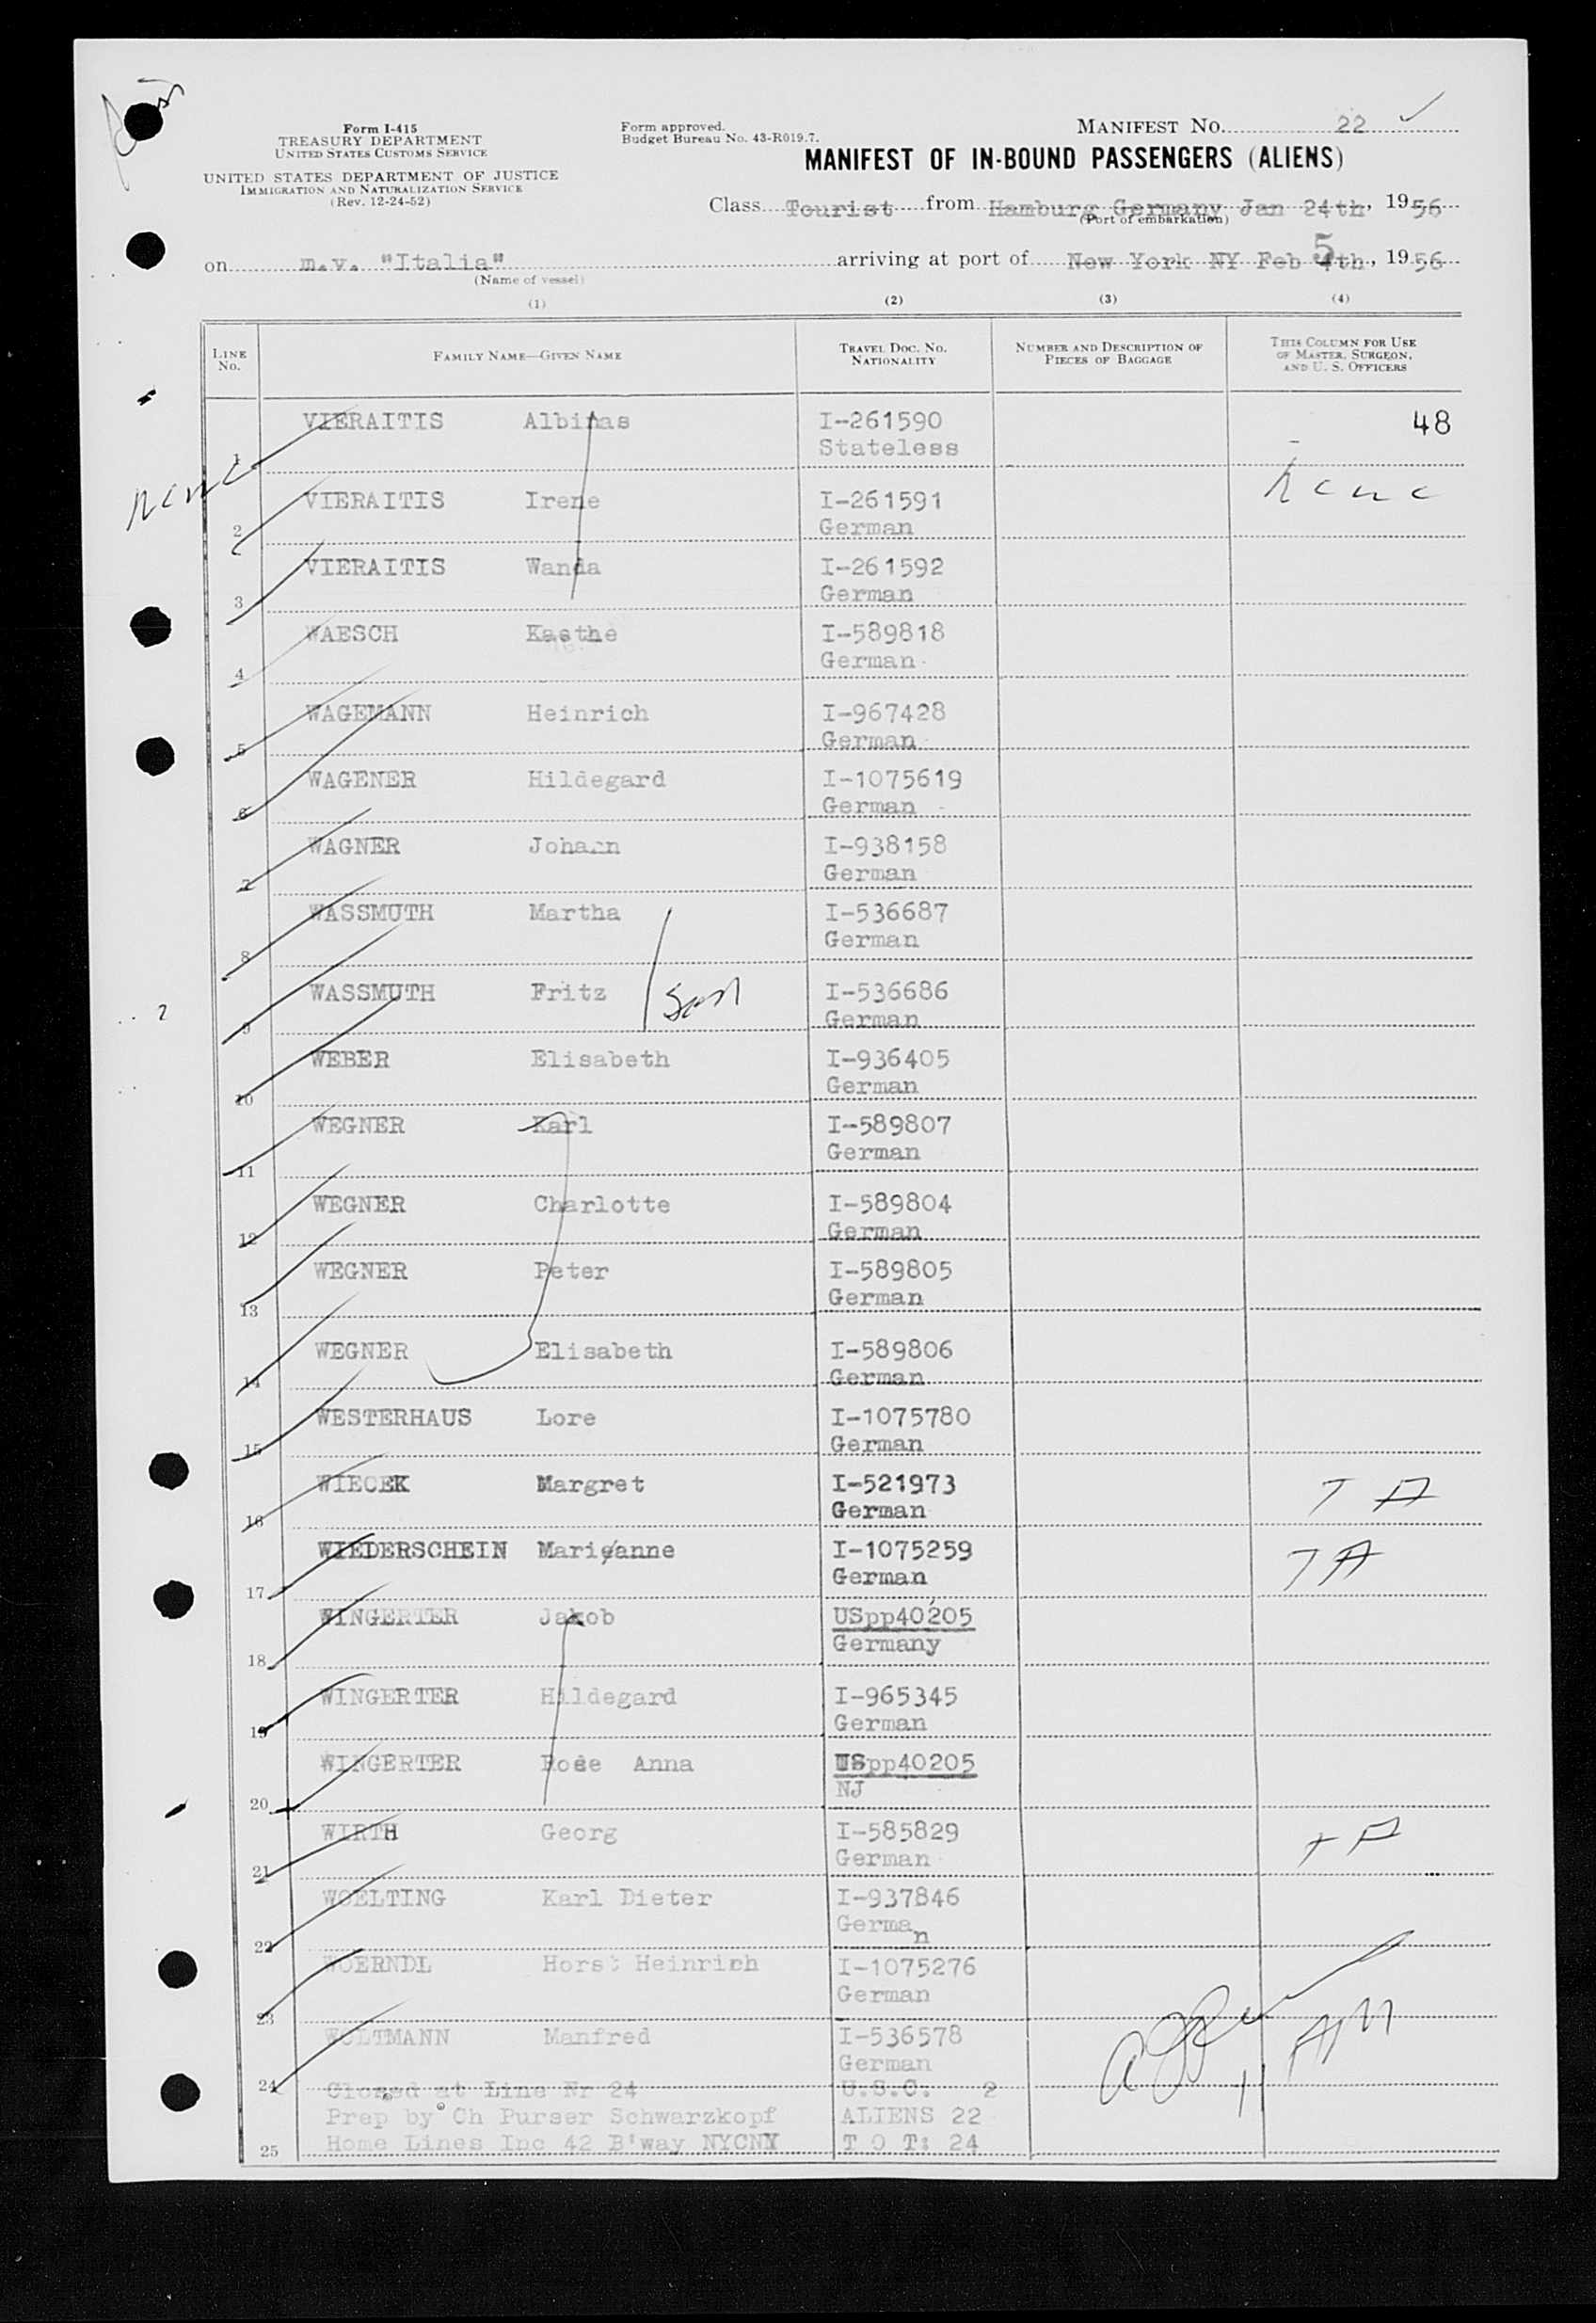 Form I-415
TREASURY DEPARTMENT
UNITED STATES CUSTOMS SERVICE
UNITED STATES DEPARTMENT OF JUSTICE
IMMIGRATION AND NATURALIZATION SERVICE
(Rev. 12-24-52)
Form approved.
Budget Bureau No. 43-R019.7.
MANIFEST No. 22
MANIFEST OF IN-BOUND PASSENGERS (ALIENS)
Class Tourist from Hamburg Germany Jan 24th, 1956
(Port of embarkation)
on m.v. "Italia" arriving at port of New York NY Feb 5th, 1956
(Name of vessel)
(1) (2) (3) (4)
LINE No. FAMILY NAME—GIVEN NAME TRAVEL DOC. No. NATIONALITY NUMBER AND DESCRIPTION OF PIECES OF BAGGAGE THIS COLUMN FOR USE OF MASTER, SURGEON, AND U. S. OFFICERS
1 VIERAITIS Albinas I-261590 48
Stateless
2 VIERAITIS Irene I-261591
German
3 VIERAITIS Wanda I-261592
German
4 WAESCH Kaethe I-589818
German
5 WAGEMANN Heinrich I-967428
German
6 WAGENER Hildegard I-1075619
German
7 WAGNER Johann I-938158
German
8 WASSMUTH Martha I-536687
German
9 WASSMUTH Fritz I-536686
German
10 WEBER Elisabeth I-936405
German
11 WEGNER Karl I-589807
German
12 WEGNER Charlotte I-589804
German
13 WEGNER Peter I-589805
German
14 WEGNER Elisabeth I-589806
German
15 WESTERHAUS Lore I-1075780
German
16 WIECEK Margret I-521973 T A
German
17 WIEDERSCHEIN Marieanne I-1075259 T A
German
18 WINGERTER Jakob USpp40205
Germany
19 WINGERTER Hildegard I-965345
German
20 WINGERTER Rose Anna USpp40205
NJ
21 WIRTH Georg I-585829
German
22 WOELTING Karl Dieter I-937846
German
23 WOERNDL Horst Heinrich I-1075276
German
24 WOLTMANN Manfred I-536578
German
Closed at Line Nr 24 U.S.C. 2
Prep by Ch Purser Schwarzkopf ALIENS 22
25 Home Lines Inc 42 B'way NYCNY T O T: 24